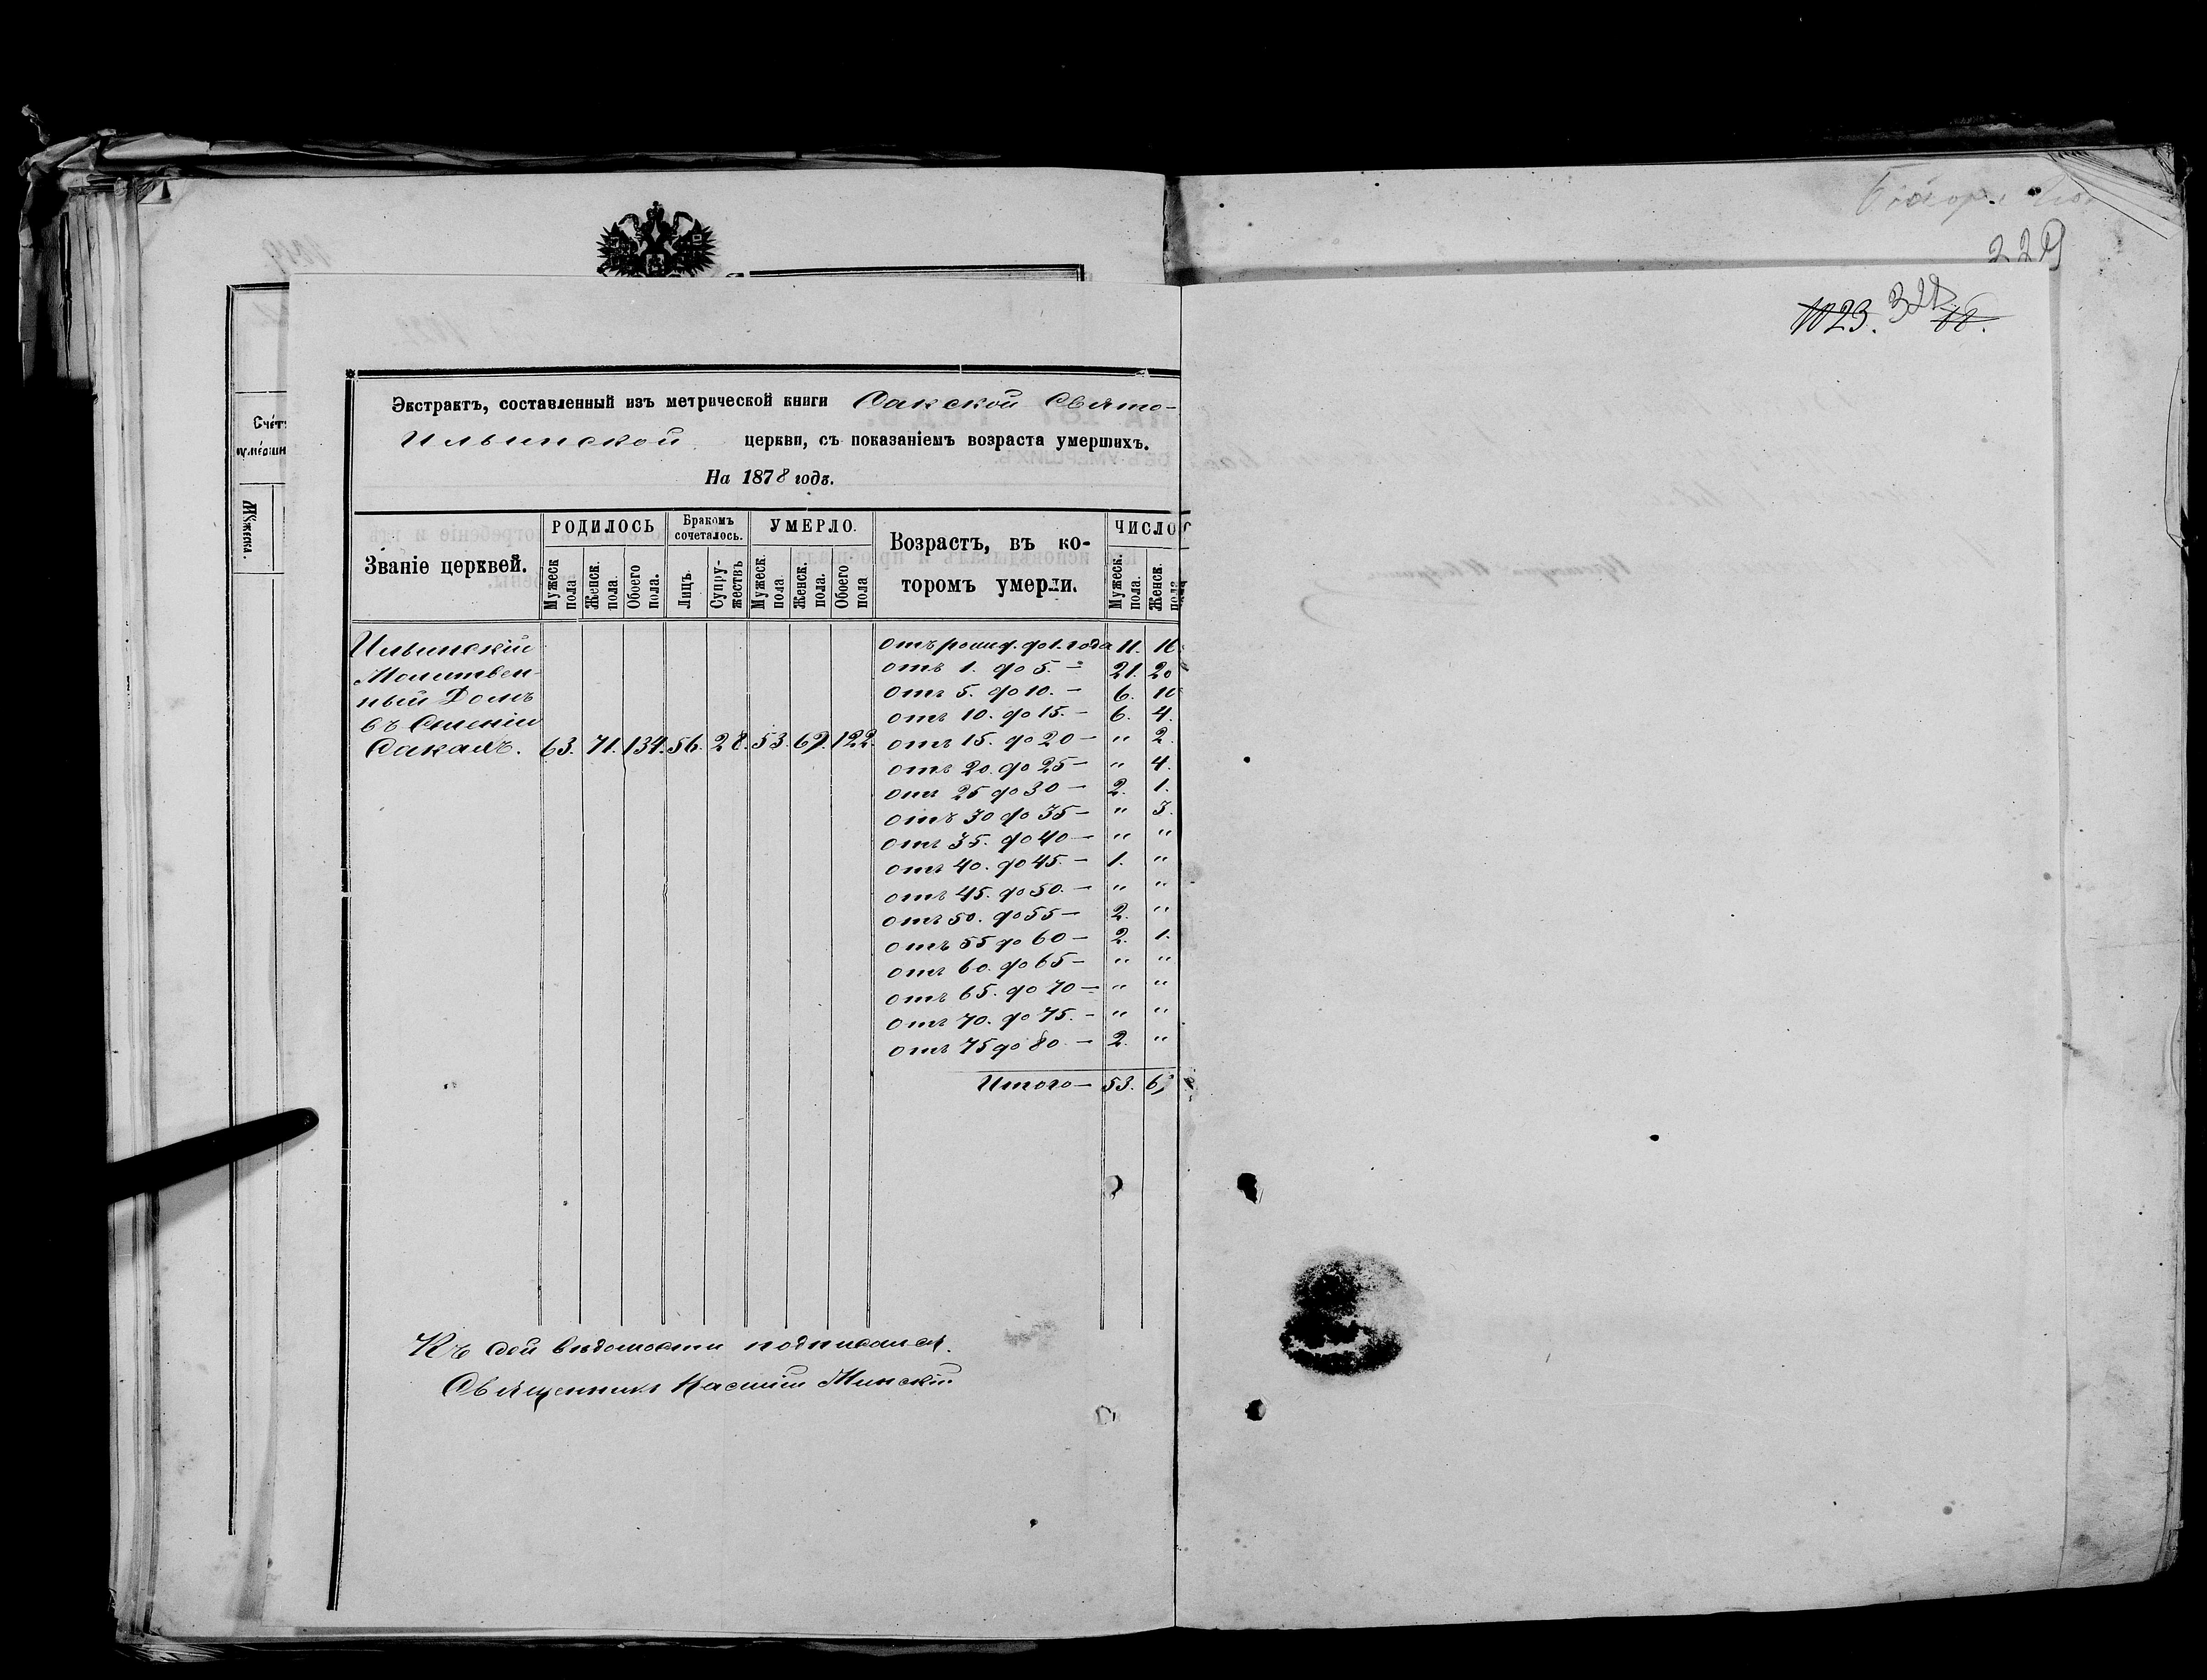 Экстрактъ, составленный изъ метрической книги Сакской Свято-
Ильинской церкви, съ показаніемъ возраста умершихъ.
На 1878 годъ.
Званіе церквей.
РОДИЛОСЬ
Мужеск пола
Женск. пола.
Обоего пола.
Бракомъ сочеталось.
Лицъ.
Супружествъ
УМЕРЛО.
Мужеск. пола.
Женск. пола.
Обоего пола
Возрастъ, въ которомъ умерли.
ЧИСЛО
Мужеск. пола.
Женск. пола
Ильинскій
Молитвен-
ный Домъ
въ
Сакахъ. 63. 71. 134. 56. 28. 53. 69. 122.
отъ рожд. до 1. года 11.
отъ 1. до 5. - 21. 20
отъ 5. до 10. - 6. 10
отъ 10. до 15. - 6. 4.
отъ 15. до 20 - " 2.
отъ 20. до 25 - " 4.
отъ 25 до 30 - 2. 1.
отъ 30 до 35 - "
отъ 35. до 40 - " "
отъ 40. до 45. - 1. "
отъ 45. до 50. - " "
отъ 50. до 55 - 2. "
отъ 55 до 60 - 2. 1.
отъ 60. до 65 - " "
отъ 65. до 70 - " "
отъ 70. до 75. - " "
отъ 75 до 80. - 2. "
Итого - 53.
Къ сей вѣдомости подписался.
Священникъ Минскій
Мужеска.
229
23.